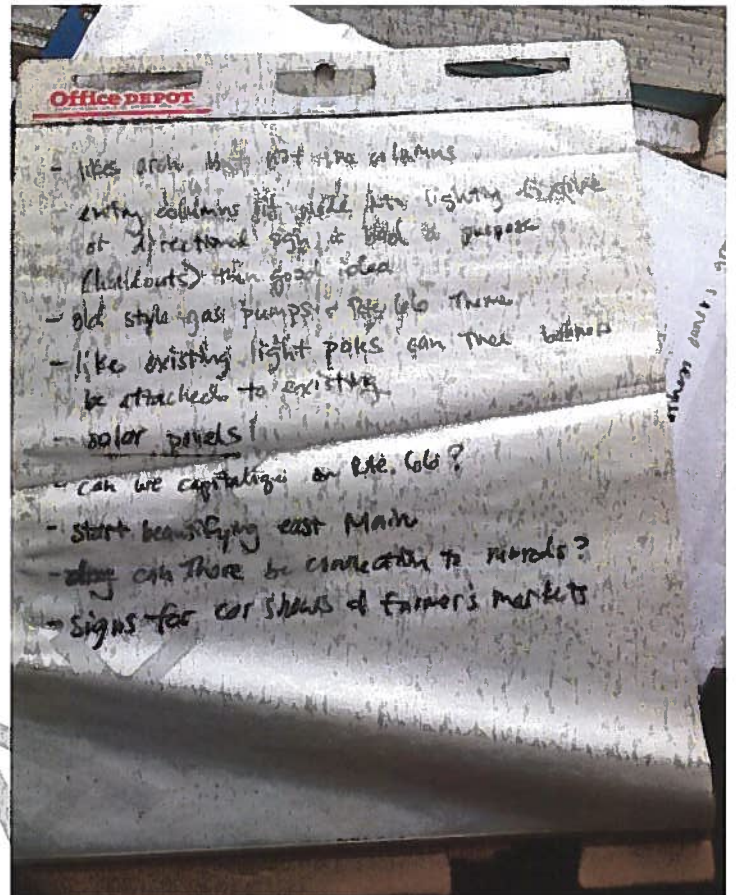 Office DEPOT
- likes arch but not the columns
- entry columns fit lighting
or directional sign & purpose
(handouts) then good idea
- old style gas pumps & Rte 66 Theme
- like existing light poles can Then banners
be attached to existing
- solar panels
- can we capitalize on Rte. 66?
- start beautifying east Main
- can There be connection to
- signs for car shows & farmer's markets